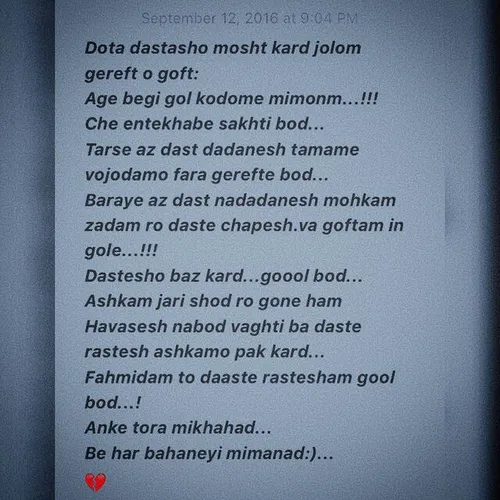 September 12, 2016 at 9:04 PM
Dota dastasho mosht kard jolom
gereft o goft:
Age begi gol kodome mimonm...!!!
Che entekhabe sakhti bod...
Tarse az dast dadanesh tamame
vojodamo fara gerefte bod...
Baraye az dast nadadanesh mohkam
zadam ro daste chapesh.va goftam in
gole...!!!
Dastesho baz kard...goool bod...
Ashkam jari shod ro gone ham
Havasesh nabod vaghti ba daste
rastesh ashkamo pak kard...
Fahmidam to daaste rastesham gool
bod...!
Anke tora mikhahad...
Be har bahaneyi mimanad:)...
💔